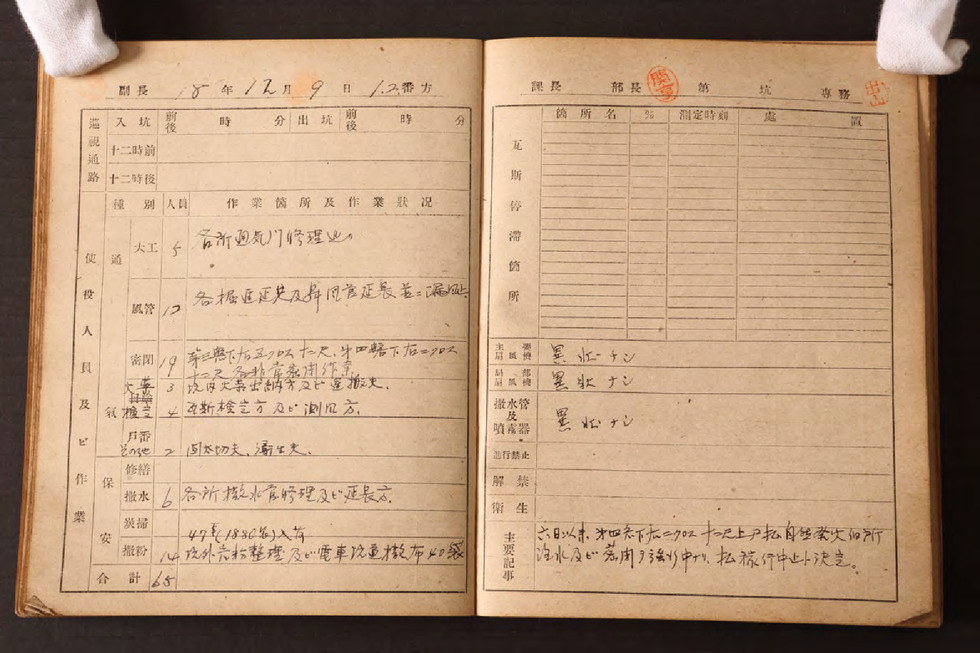 副長 18年12月9日 1.2番方
巡視通路 入坑 前後 時 分 出坑 前後 時 分
十二時前
十二時後
使役人員及ビ作業
種別 人員 作業箇所及作業狀况
通氣
大工 5 各所通気門修理 
風管 12 各掘進延先及昇風官延長並ニ漏風
密閉 19 第三 下右五クロス十二尺、第四 下右二クロス
十二尺 各 密閉作業
火薬 3 坑内火薬出納方及ビ運搬夫.
檢定 4 瓦斯検定方及ビ測風方.
戸番 その他 2 切夫、衛生夫.
保安
修繕
撤水 6 各所撒水官修理及ビ延長方.
炭掃 47 (1880 )入荷
撤粉 14 坑外岩粉整理及ビ電車坑道撤布40袋
合計 65
課長 部長 第 坑 専務
瓦斯停滯箇所
箇所名 % 測定時刻 處置
主要扇風機 異状ナシ
局部扇風機 異状ナシ
撤水管及噴霧器 異状ナシ
進行禁止
解禁
衛生
主要記事 六日以来、第四 下右二クロス十二尺上 払自然発火个所
注水及ビ密閉ヲ 中ナリ、払稼行中止ト決定。